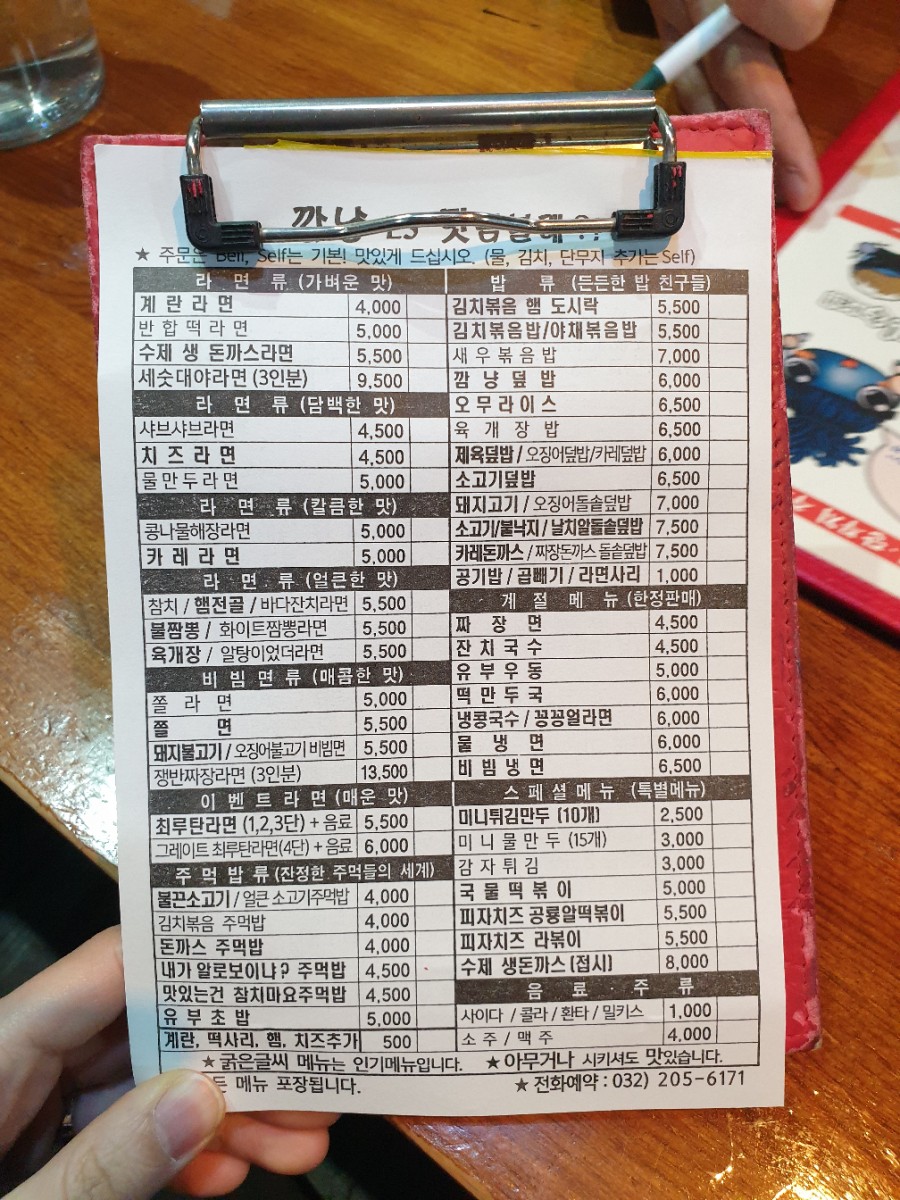 깜냥
★ 주문은 Bell, Self는 기본! 맛있게 드십시오. (물, 김치, 단무지 추가는 Self)
라 면 류 (가벼운 맛)
계란라면 4,000
반합떡라면 5,000
수제 생 돈까스라면 5,500
세숫대야라면 (3인분) 9,500
라 면 류 (담백한 맛)
샤브샤브라면 4,500
치즈라면 4,500
물만두라면 5,000
라 면 류 (칼큼한 맛)
콩나물해장라면 5,000
카레라면 5,000
라 면 류 (얼큰한 맛)
참치 / 햄전골 / 바다잔치라면 5,500
불짬뽕 / 화이트짬뽕라면 5,500
육개장 / 알탕이었더라면 5,500
비 빔 면 류 (매콤한 맛)
쫄 라 면 5,000
쫄 면 5,500
돼지불고기 / 오징어불고기 비빔면 5,500
쟁반짜장라면 (3인분) 13,500
이 벤 트 라 면 (매운 맛)
최루탄라면 (1,2,3단) + 음료 5,500
그레이트 최루탄라면(4단) + 음료 6,000
주 먹 밥 류 (진정한 주먹들의 세계)
불끈소고기 / 얼큰 소고기주먹밥 4,000
김치볶음 주먹밥 4,000
돈까스 주먹밥 4,000
내가 알로보이냐? 주먹밥 4,500
맛있는건 참치마요주먹밥 4,500
유부초밥 5,000
계란, 떡사리, 햄, 치즈추가 500
밥 류 (든든한 밥 친구들)
김치볶음 햄 도시락 5,500
김치볶음밥/야채볶음밥 5,500
새우볶음밥 7,000
깜냥덮밥 6,000
오무라이스 6,500
육개장밥 6,500
제육덮밥 / 오징어덮밥/카레덮밥 6,000
소고기덮밥 6,500
돼지고기 / 오징어돌솥덮밥 7,000
소고기/불낙지 / 날치알돌솥덮밥 7,500
카레돈까스 / 짜장돈까스 돌솥덮밥 7,500
공기밥 / 곱빼기 / 라면사리 1,000
계 절 메 뉴 (한정판매)
짜 장 면 4,500
잔치국수 4,500
유부우동 5,000
떡만두국 6,000
냉콩국수 / 꽁꽁얼라면 6,000
물 냉 면 6,000
비빔냉면 6,500
스 페 셜 메 뉴 (특별메뉴)
미니튀김만두 (10개) 2,500
미니물만두 (15개) 3,000
감자튀김 3,000
국물떡볶이 5,000
피자치즈 공룡알떡볶이 5,500
피자치즈 라볶이 5,500
수제 생돈까스 (접시) 8,000
음 료 주 류
사이다 / 콜라 / 환타 / 밀키스 1,000
소주 / 맥주 4,000
★ 굵은글씨 메뉴는 인기메뉴입니다. ★ 아무거나 시키셔도 맛있습니다.
든 메뉴 포장됩니다. ★ 전화예약 : 032) 205-6171